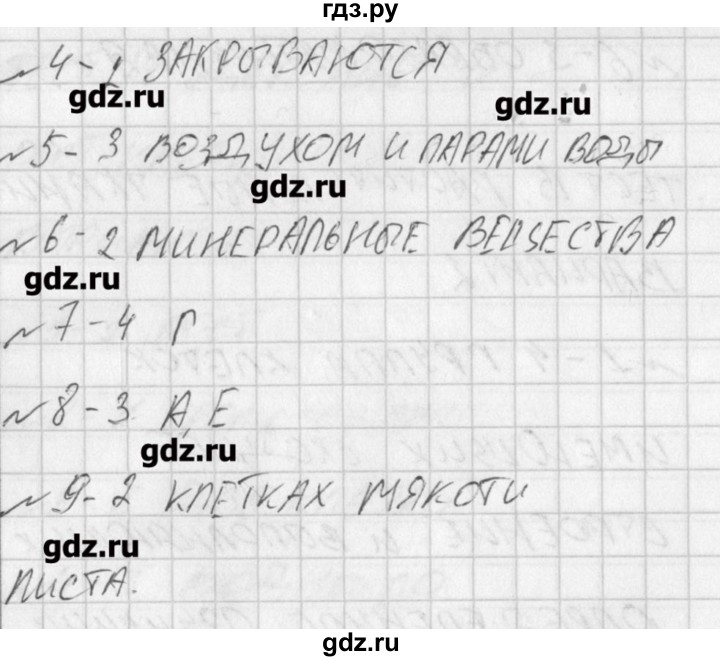 гдз.ру
№4-1 ЗАКРЫВАЮТСЯ
gdz.ru
gdz.ru
№5-3 ВОЗДУХОМ И ПАРАМИ ВОДЫ
gdz.ru
№6-2 МИНЕРАЛЬНЫЕ ВЕЩЕСТВА
gdz.ru
№7-4 Г
№8-3 А, Е
gdz.ru
№9-2 КЛЕТКАХ МЯКОТИ
gdz.ru
ЛИСТА.
gdz.ru